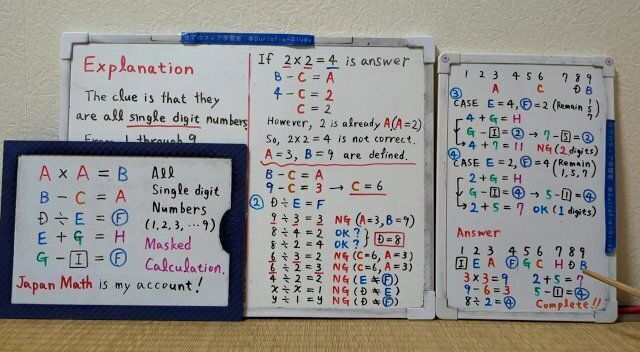 リアロフィア学習室 @Surlofia-Study
Explanation
The clue is that they
are all single digit numbers
From 1 through 9
If 2×2=4 is answer
B-C=A
4-C=2
C=2
However, 2 is already A(A=2)
So, 2×2=4 is not correct.
A=3, B=9 are defined.
B-C=A
9-C=3 → C=6
② Đ÷E=F
9÷3=3 NG (A=3, B=9)
8÷4=2 OK?
8÷2=4 OK? } Đ=8
6÷3=2 NG (C=6, A=3)
6÷2=3 NG (C=6, A=3)
4÷2=2 NG (E≠Ⓕ)
x÷x=1 NG (Đ≠E)
y÷1=y NG (Đ≠Ⓕ)
A×A=B
B-C=A
Đ÷E=Ⓕ
E+G=H
G-I=Ⓕ
All
Single digit
Numbers
(1,2,3,…9)
Masked
Calculation.
Japan Math is my account!
1 2 3 4 5 6 7 8 9
A C Đ B
③
CASE E=4, F=2 (Remain 1 5 7)
4+G=H
G-I=② → 7-5=②
4+7=11 NG(2 digits)
④
CASE E=2, F=4 (Remain 1,5,7)
2+G=H
G-I=④ → 5-1=④
2+5=7 OK (1 digits)
Answer
1 2 3 4 5 6 7 8 9
I E A Ⓕ G C H Đ B
3×3=9 2+5=7
9-6=3 5-1=④
8÷2=④ Complete!!